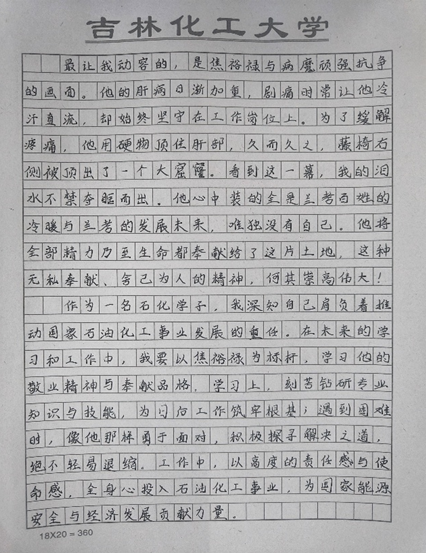 吉林化工大学
最让我动容的，是焦裕禄与病魔顽强抗争
的画面。他的肝病日渐加重，剧痛时常让他冷
汗直流，却始终坚守在工作岗位上。为了缓解
疼痛，他用硬物顶住肝部，久而久之，藤椅右
侧被顶出了一个大窟窿。看到这一幕，我的泪
水不禁夺眶而出。他心中装的全是兰考百姓的
冷暖与兰考的发展未来，唯独没有自己。他将
全部精力乃至生命都奉献给了这片土地，这种
无私奉献、舍己为人的精神，何其崇高伟大！
作为一名石化学子，我深知自己肩负着推
动国家石油化工事业发展的重任。在未来的学
习和工作中，我要以焦裕禄为标杆，学习他的
敬业精神与奉献品格，学习上，刻苦钻研专业
知识与技能，为日后工作筑牢根基；遇到困难
时，像他那样勇于面对，积极探寻解决之道，
绝不轻易退缩。工作中，以高度的责任感与使
命感，全身心投入石油化工事业，为国家能源
安全与经济发展贡献力量。
18X20=360